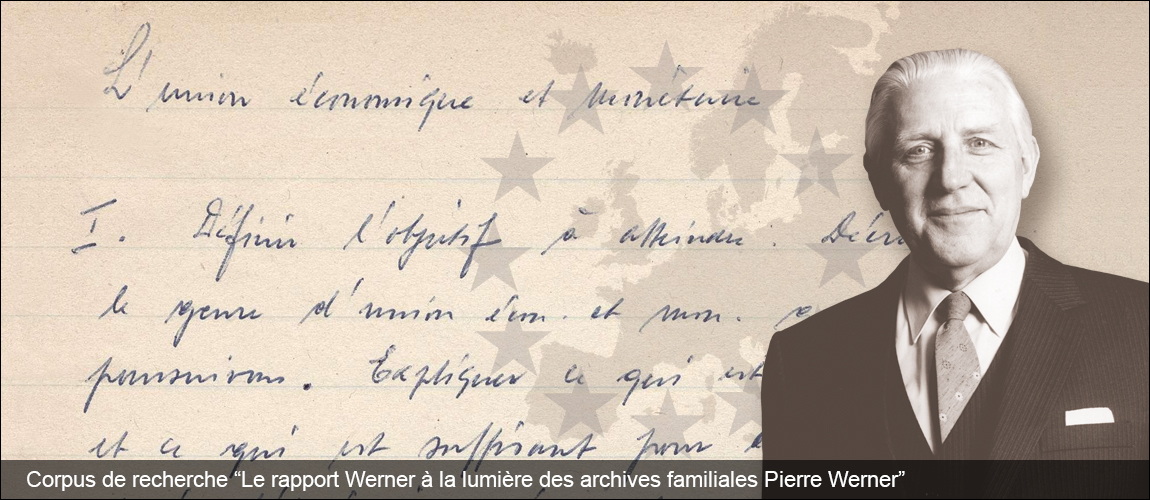 L'union économique et monétaire
I. Définir l'objectif à atteindre. Décri
le genre d'union écon. et mon.
poursuivons. Expliquer ce qui est
et ce qui est suffisant pour
Corpus de recherche “Le rapport Werner à la lumière des archives familiales Pierre Werner”